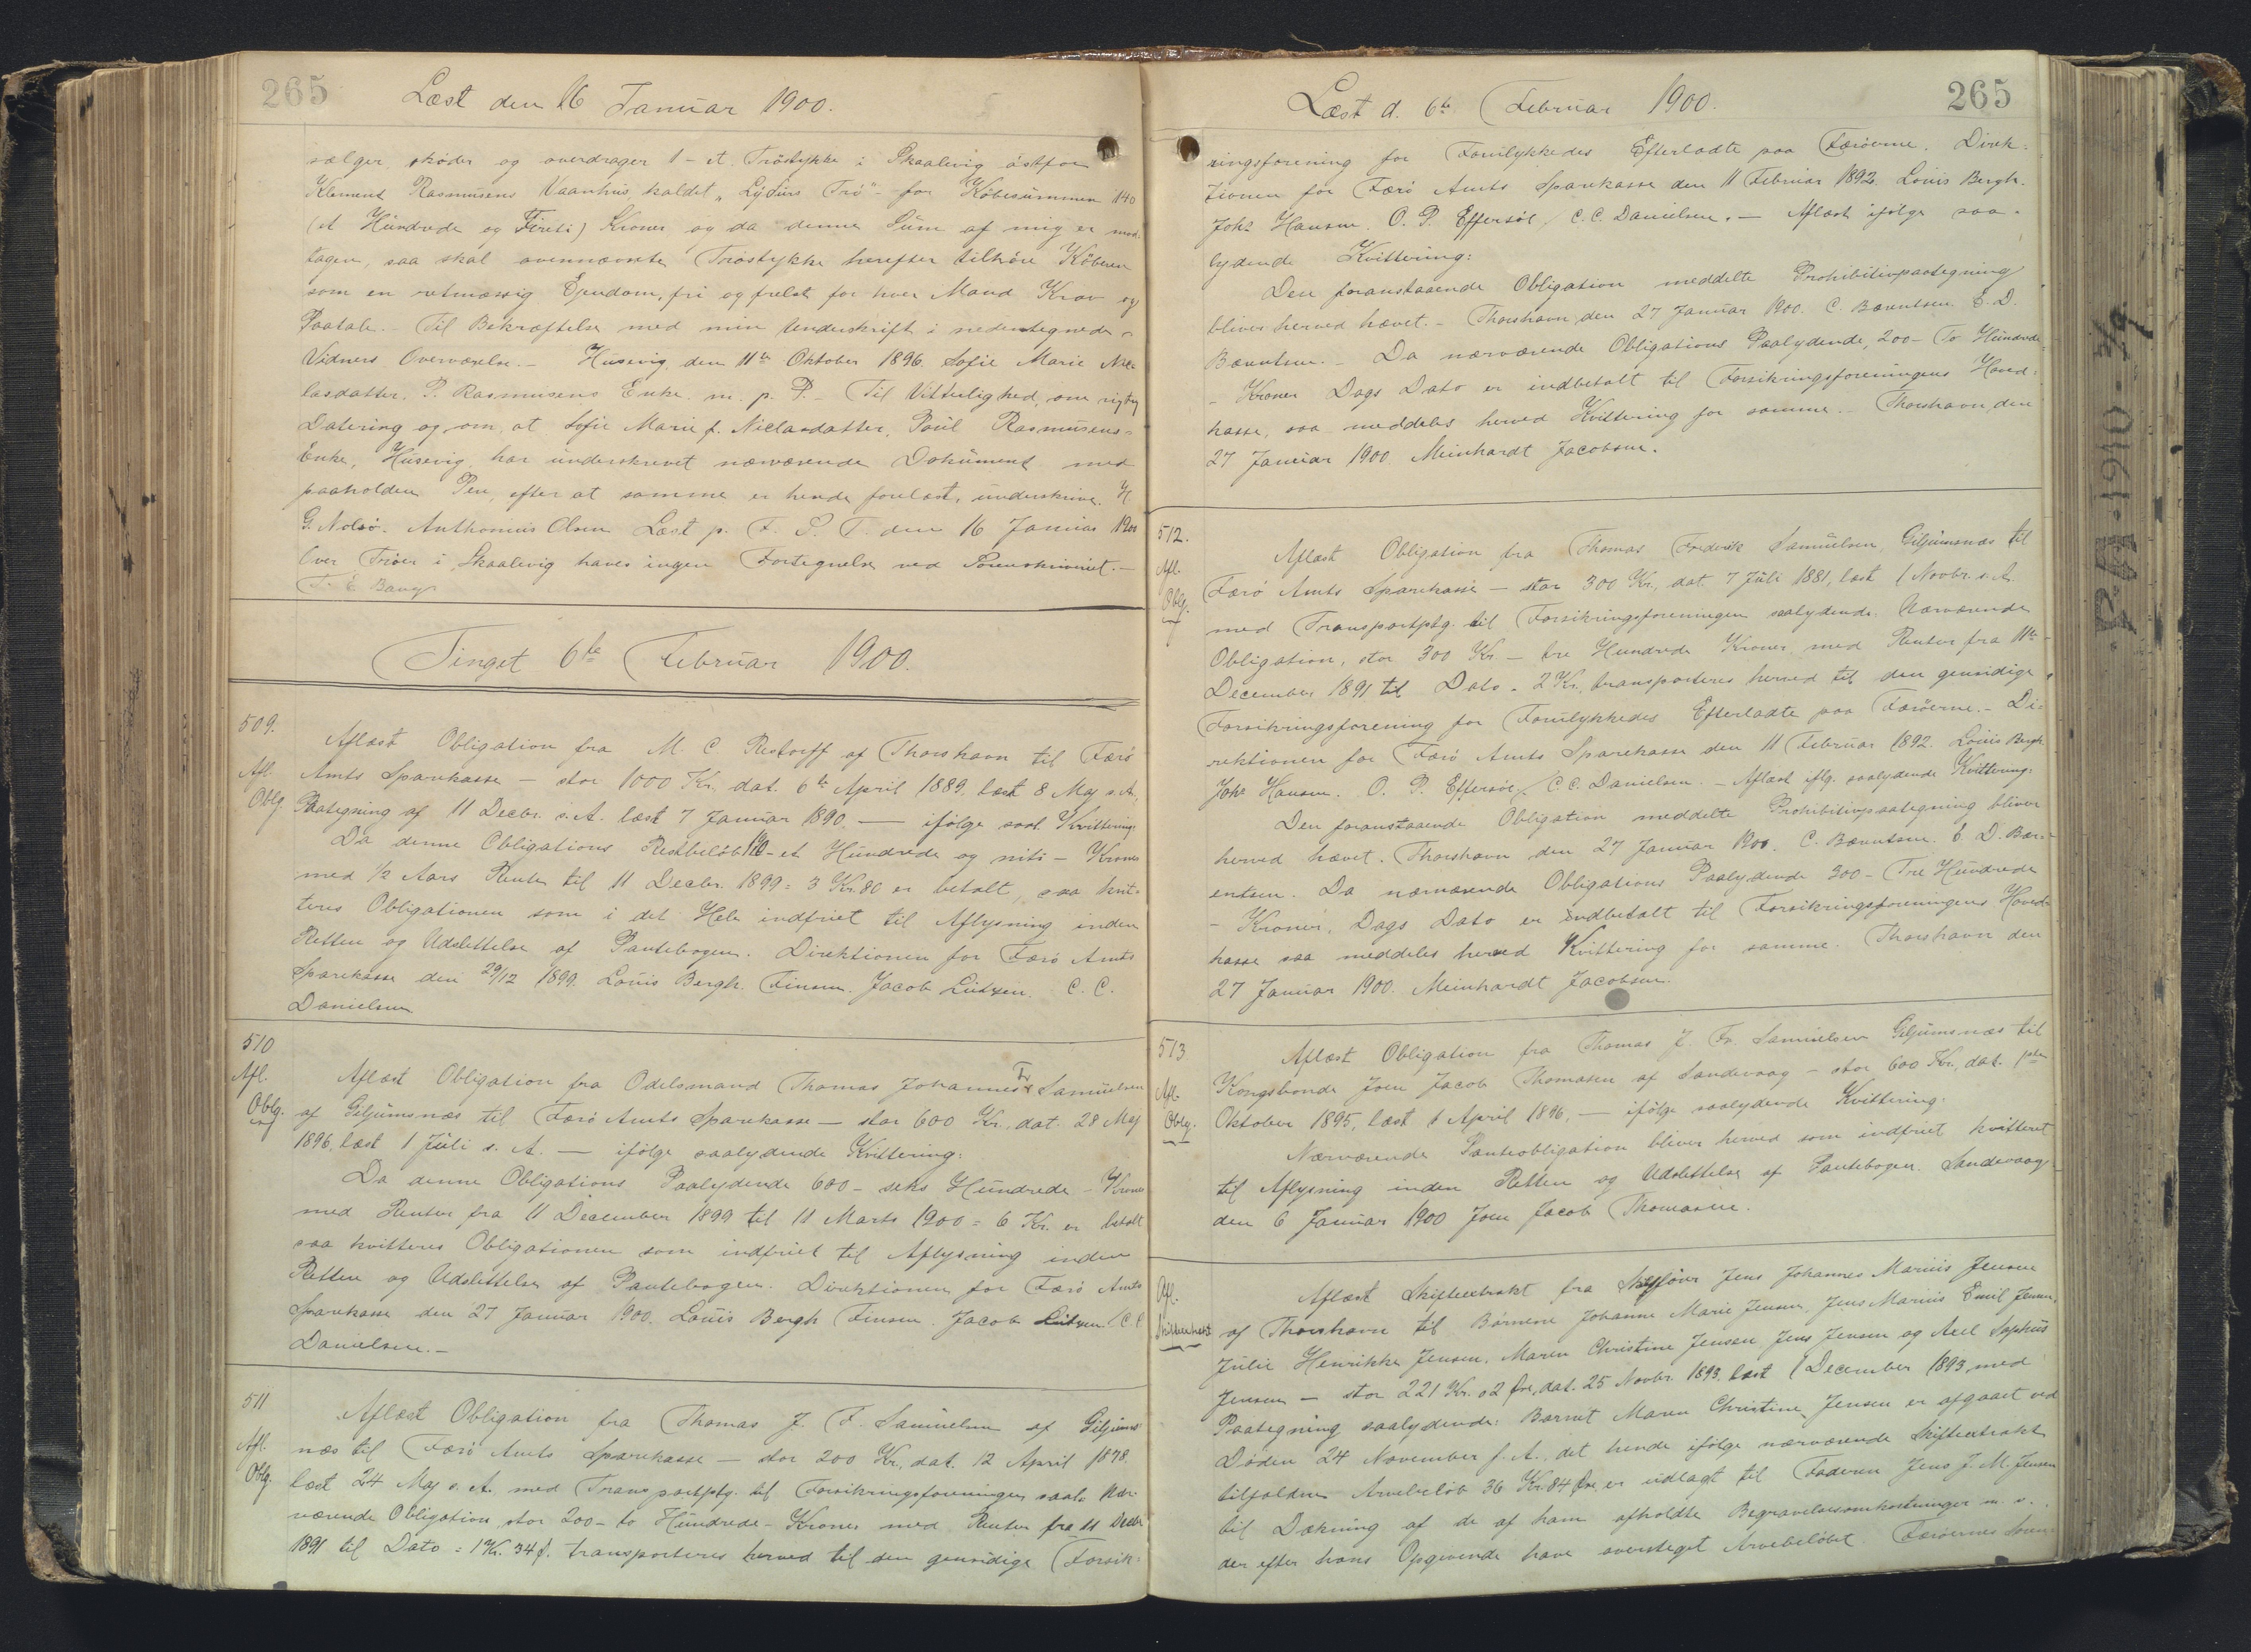 265
Læst den 16 Januar 1900.
sælger, skøder og overdrager 1 - et Trøstykke i Skaalevig østfor
Klement Rasmusens Vaanhus, kaldet „Lydurs Trø" - for Købesummen 140
(et Hundrede og Fireti) Kroner og da denne Sum af mig er mod-
tagen, saa skal ovennævnte Trøstykke herefter tilhøre Køberen
som en retmæssig Ejendom, fri og frelst for hver Mand Krav og
Paatale. - Til Bekræftelse med min Underskrift i nedentegnede
Vidners Overværelse. - Husevig den 11te Oktober 1896. Sofie Marie Nic-
lasdatter, P. Rasmusens Enke. m. p. P. - Til Vitterlighed, om rigtig
Datering og om, at Sofie Marie f. Niclasdatter, Poul Rasmusens
Enke, Husevig har underskrevet nærværende Dokument med
paaholden Pen, efter at samme er hende forelæst, underskrive. H
G. Nolsø. Anthonius Olsen Læst p. F. S. T. den 16 Januar 1900
Over Trøer i Skaalevig haves ingen Fortegnelse ved Sorenskriveriet. -
F. E. Bang
Tinget 6te Februar 1900.
509.
Afl.
Oblg.
Aflæst Obligation fra M. C. Restorff af Thorshavn til Færø
Amts Sparekasse - stor 1000 Kr. dat. 6te April 1889, læst 8 Maj s. A.,
Paategning af 11 Decbr. s. A. læst 7 Januar 1890 - ifølge saal. Kvittering:
Da denne Obligations Restbeløb 190 - et Hundrede og niti - Kroner
med ½ Aars Renter til 11 Decbr. 1899 = 3 Kr. 80 er betalt, saa kvit-
teres Obligationen som i det Hele indfriet til Aflysning inden
Retten og Udslettelse af Pantebogen. Direktionen for Færø Amts
Sparekasse den 29/12 1899. Louis Bergh. Finsen. Jacob Lützen. C. C.
Danielsen
510
Afl.
Oblg.
Aflæst Obligation fra Odelsmand Thomas Johannes Fr. Samuelsen
af Giljumsnæs til Færø Amts Sparekasse - stor 600 Kr., dat. 28 Maj
1896, læst 1 Juli s. A. - ifølge saalydende Kvittering:
Da denne Obligations Paalydende 600 - seks Hundrede - Kroner
med Renter fra 11 December 1899 til 11 Marts 1900 = 6 Kr. er betalt
saa kvitteres Obligationen som indfriet til Aflysning inden
Retten og Udslettelse af Pantebogen. Direktionen for Færø Amts
Sparekasse den 27 Januar 1900. Louis Bergh Finsen. Jacob Lützen. C. C.
Danielsen. -
511
Afl.
Oblg.
Aflæst Obligation fra Thomas J. F. Samuelsen af Giljums-
næs til Færø Amts Sparekasse - stor 200 Kr., dat. 12 April 1878,
læst 24 Maj s. A. med Transportptg. til Forsikringsforeningen saal: Nær-
værende Obligation, stor 200 - to Hundrede - Kroner med Renter fra 11 Decbr
1891 til Dato = 1 Kr. 34 ø. transporteres herved til den gensidige Forsik-
Læst d. 6te Februar 1900.
265
ringsforening for Forulykkedes Efterladte paa Færøerne. Direk-
tionen for Færø Amts Sparekasse den 11 Februar 1892. Louis Bergh.
Johs Hansen. O. P. Effersøe / C. C. Danielsen. - Aflæst ifølge saa-
lydende Kvittering:
Den foranstaaende Obligation meddelte Prohibitivpaategning
bliver herved hævet. - Thorshavn den 27 Januar 1900. C. Bærentsen. E. D.
Bærentsen. - Da nærværende Obligations Paalydende, 200 - To Hundrede
- Kroner Dags Dato er indbetalt til Forsikringsforeningens Hoved-
kasse, saa meddeles herved Kvittering for samme. Thorshavn, den
27 Januar 1900 Meinhardt Jacobsen.
512.
Afl.
Oblg.
Aflæst Obligation fra Thomas Frederik Samuelsen, Giljumsnæs til
Færø Amts Sparekasse - stor 300 Kr., dat. 7 Juli 1881, læst 1 Novbr. s. A.
med Transportptg. til Forsikringsforeningen saalydende. Nærværende
Obligation, stor 300 Kr. - tre Hundrede Kroner med Renter fra 11te
December 1891 til Dato = 2 Kr. transporteres herved til den gensidige
Forsikringsforening for Forulykkedes Efterladte paa Færøerne. - Di-
rektionen for Færø Amts Sparekasse den 11 Februar 1892. Louis Bergh
Johs Hansen. O. P. Effersøe / C. C. Danielsen. - Aflæst iflg. saalydende Kvittering:
Den foranstaaende Obligation meddelte Prohibitivpaategning bliver
herved hævet. Thorshavn den 27 Januar 1900. C. Bærentsen. E. D. Bær-
entsen. Da nærværende Obligations Paalydende 300 - Tre Hundrede
- Kroner, Dags Dato er indbetalt til Forsikringsforeningens Hoved-
kasse saa meddeles herved Kvittering for samme. Thorshavn den
27 Januar 1900. Meinhardt Jacobsen.
513.
Afl.
Oblg.
Aflæst Obligation fra Thomas J. Fr. Samuelsen Giljumsnæs til
Kongsbonde Joen Jacob Thomasen af Sandevaag - stor 600 Kr., dat. 1ste
Oktober 1895, læst 1 April 1896, - ifølge saalydende Kvittering.
Nærværende Panteobligation bliver herved som indfriet kvitteret
til Aflysning inden Retten og Udslettelse af Pantebogen. Sandevaag
den 6 Januar 1900 Joen Jacob Thomasen.
Afl.
Skifteextrakt
Aflæst Skifteextrakt fra Jens Johannes Marius Jensen
af Thorshavn til Børnene Johanne Marie Jensen, Jens Marius Emil Jensen,
Julie Henrikke Jensen, Maren Christine Jensen, Jens Jensen og Axel Sophus
Jensen - stor 221 Kr. 02 Øre, dat. 25 Novbr. 1893, læst 1 December 1893 med
Paategning saalydende: Barnet Maren Christine Jensen er afgaaet ved
Døden 24 November f. A., det hende ifølge nærværende Skifteextrakt
tilfaldne Arvebeløb 36 Kr. 84 Øre er udlagt til Faderen Jens J. M. Jensen
til Dækning af de af ham afholdte Begravelsesomkostninger m. v.
der efter hans Opgivende have oversteget Arvebeløbet. Færøernes Soren-